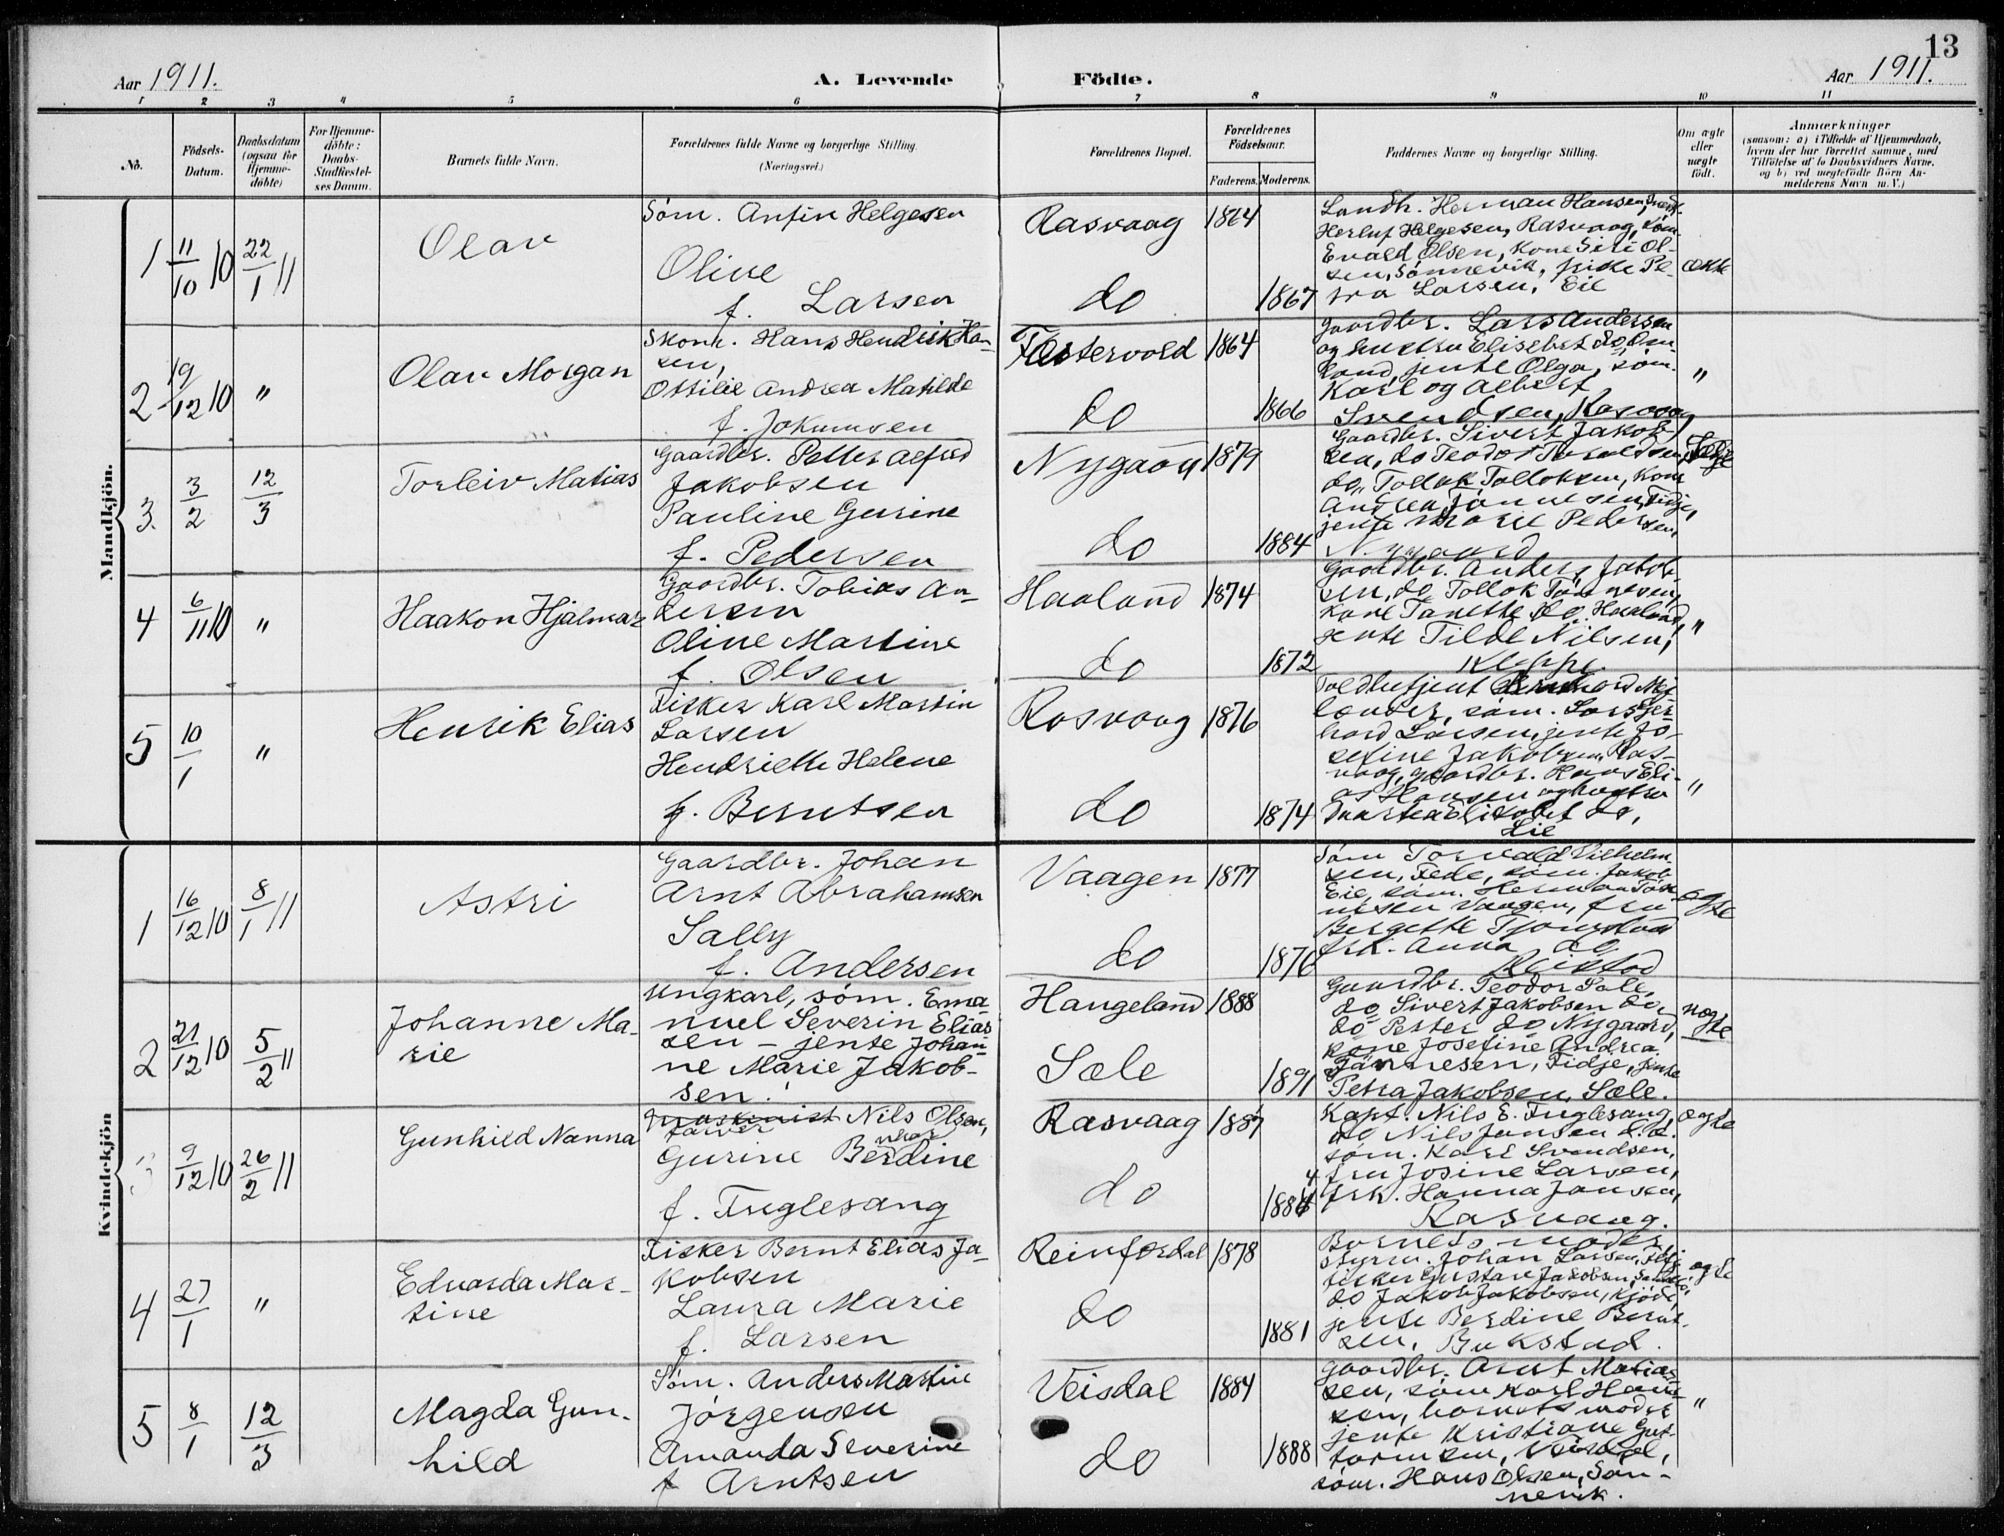 13
Aar 1911. A. Levende Födte. Aar 1911.
1 2 3 4 5 6 7 8 9 10 11
No.
Födsels-Datum.
Daabsdatum (ogsaa for Hjemme-döbte)
For Hjemme-döbte: Daabs-Stadfæstel-ses Datum.
Barnets fulde Navn.
Forældrenes fulde Navne og borgerlige Stilling.
(Næringsvei.)
Forældrenes Bopæl.
Forældrenes Födselsaar.
Faderens. Moderens.
Faddernes Navne og borgerlige Stilling.
Om ægte eller uægte födt.
Anmærkninger
(saasom: a) i Tilfælde af Hjemmedaab,
hvem der har forrettet samme, med
Tilföielse af to Daabsvidners Navne,
og b) ved uægtefödte Börn An-
melderens Navn m. V.)
Mandkjön.
1 11/10 10 22/1 11
Olav
Søm. Anfin Helgesen
Oline
f. Larsen
Rasvaag 1864
do 1867
Landh. Herman Hansen,
Herluf Helgesen, Rasvaag, søm.
Evald Olsen, Kone Siri Ol-
sen, Sønnevik, frøke Pe-
tra Larsen, Eie
ækte
2 19/12 10 "
Olav Morgan
Skom. Hans Hendrik Han-
sen,
Ottilie Andrea Matilde
f. Jokumsen
Festervold 1864
do 1866
Gaardbr. Lars Andersen
og hustru Elisebet do,
jente Olga, søm.
Karl og Albert
Svendsen, Rasvaag
"
3. 3/2 12/3
Torleiv Matias
Gaardbr. Petter Alfred
Jakobsen
Pauline Gurine
f. Pedersen
Nygaard 1879
do 1884
Gaardbr. Sivert Jakob-
sen, do Teodor
do, Tollak Tollaksen, Kone
Andrea Tønnesen, Fidje,
jente Marie Pedersen,
Nygaard
4 6/11 10 "
Haakon Hjalmar
Gaardbr. Tobias An-
dersen
Oline Martine
f. Olsen
Haaland 1874
do 1872
Gaardbr. Anders Jakob-
sen, do Tollak Tønnesen,
kone Tanette do, Haaland,
jente Tilde Nilsen,
"
5 10/1 "
Henrik Elias
Fisker Karl Martin
Larsen
Hendriette Helene
f. Berntsen
Rasvaag 1876
do 1874
Toldbetjent
søm. Lars Ger-
hard Larsen, jente Jo-
sefine Jakobsen, Ras-
vaag, gaardbr. Hans Eli-
as Hansen og hustru
Martea Elisabet do,
Eie
"
Kvindekjön
1 16/12 10 8/1 11
Astri
Gaardbr. Johan
Arnt Abrahamsen
Sally
f. Andersen
Vaagen 1877
do 1876
Søm Torvald Vilhelm-
sen, Fede, søm. Jakob
Eie, søm. Herman Tøn-
nesen Vaagen, fru
Bergette
frk. Anna do.
ægte
2 21/12 10 5/2 11
Johanne Ma-
rie
Ungkarl, søm. Ema-
nuel Severin Elias-
sen - jente Johan-
ne Marie Jakob-
sen.
Haugeland 1888
Sæle 1891
Gaardbr. Teodor Sæle,
do Sivert Jakobsen do,
do Petter do Nygaard,
kone Josefine Andrea
Tønnesen, Fidje, jente
Petra Jakobsen, Sæle.
uægte
9/12 10 26/2 11
Gunhild Nanna
Maskinist Nils Olsen,
Gurine Berdine
f. Fuglesang
Rasvaag 1887
do 1884
Kapt. Nils E. Fuglesang,
do Nils Jansen d.d.
søm. Karl Svendsen,
fru Josine Larsen,
frk. Hanna Jansen,
Rasvaag.
ægte
4 27/1 "
Edvarda Mar-
tine
Fisker Bernt Elias Ja-
kobsen
Laura Marie
f. Larsen
Reinfordal 1878
do 1881
Barnets moder,
styrm. Johan Larsen,
fisker Gustav Jakobsen,
do Jakob Jakobsen,
jente Berdine Bernt-
sen, Bukstad.
ægte
5 8/1 12/3
Magda Gun-
hild
Søm. Anders Martin
Jørgensen
Amanda Severine
f Arntsen
Veisdal 1884
do 1888
Gaardbr. Arnt Matias-
sen, søm Karl Han-
sen, barnets moder
jente Kristiane Gut-
tormsen, Veisdal,
søm. Hans Olsen, Søn-
nevik.
"